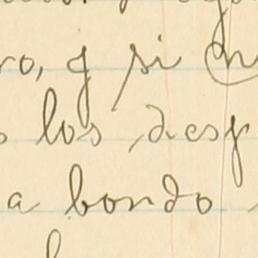 ro, y si n
s los desp
a bordo